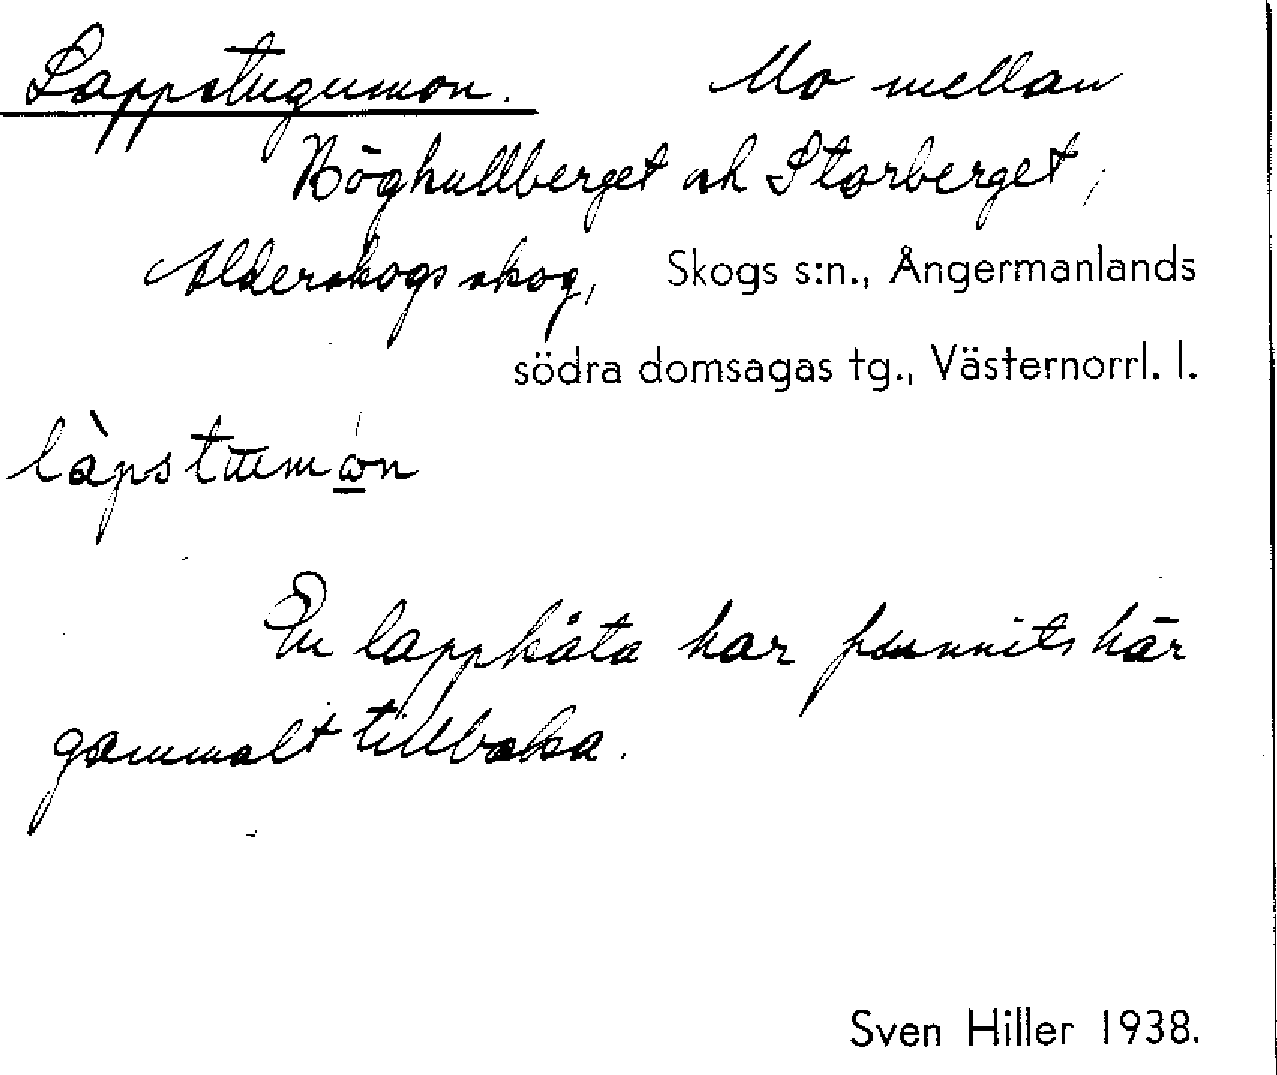 Lappstugumon. Mo mellan
Höghullberget och Storberget,
Alderskogs skog, Skogs s:n., Ångermanlands
södra domsagas tg., Västernorrl. l.
làpstūmōn
En lappkåta har funnits här
gammalt tillbaka.
Sven Hiller 1938.